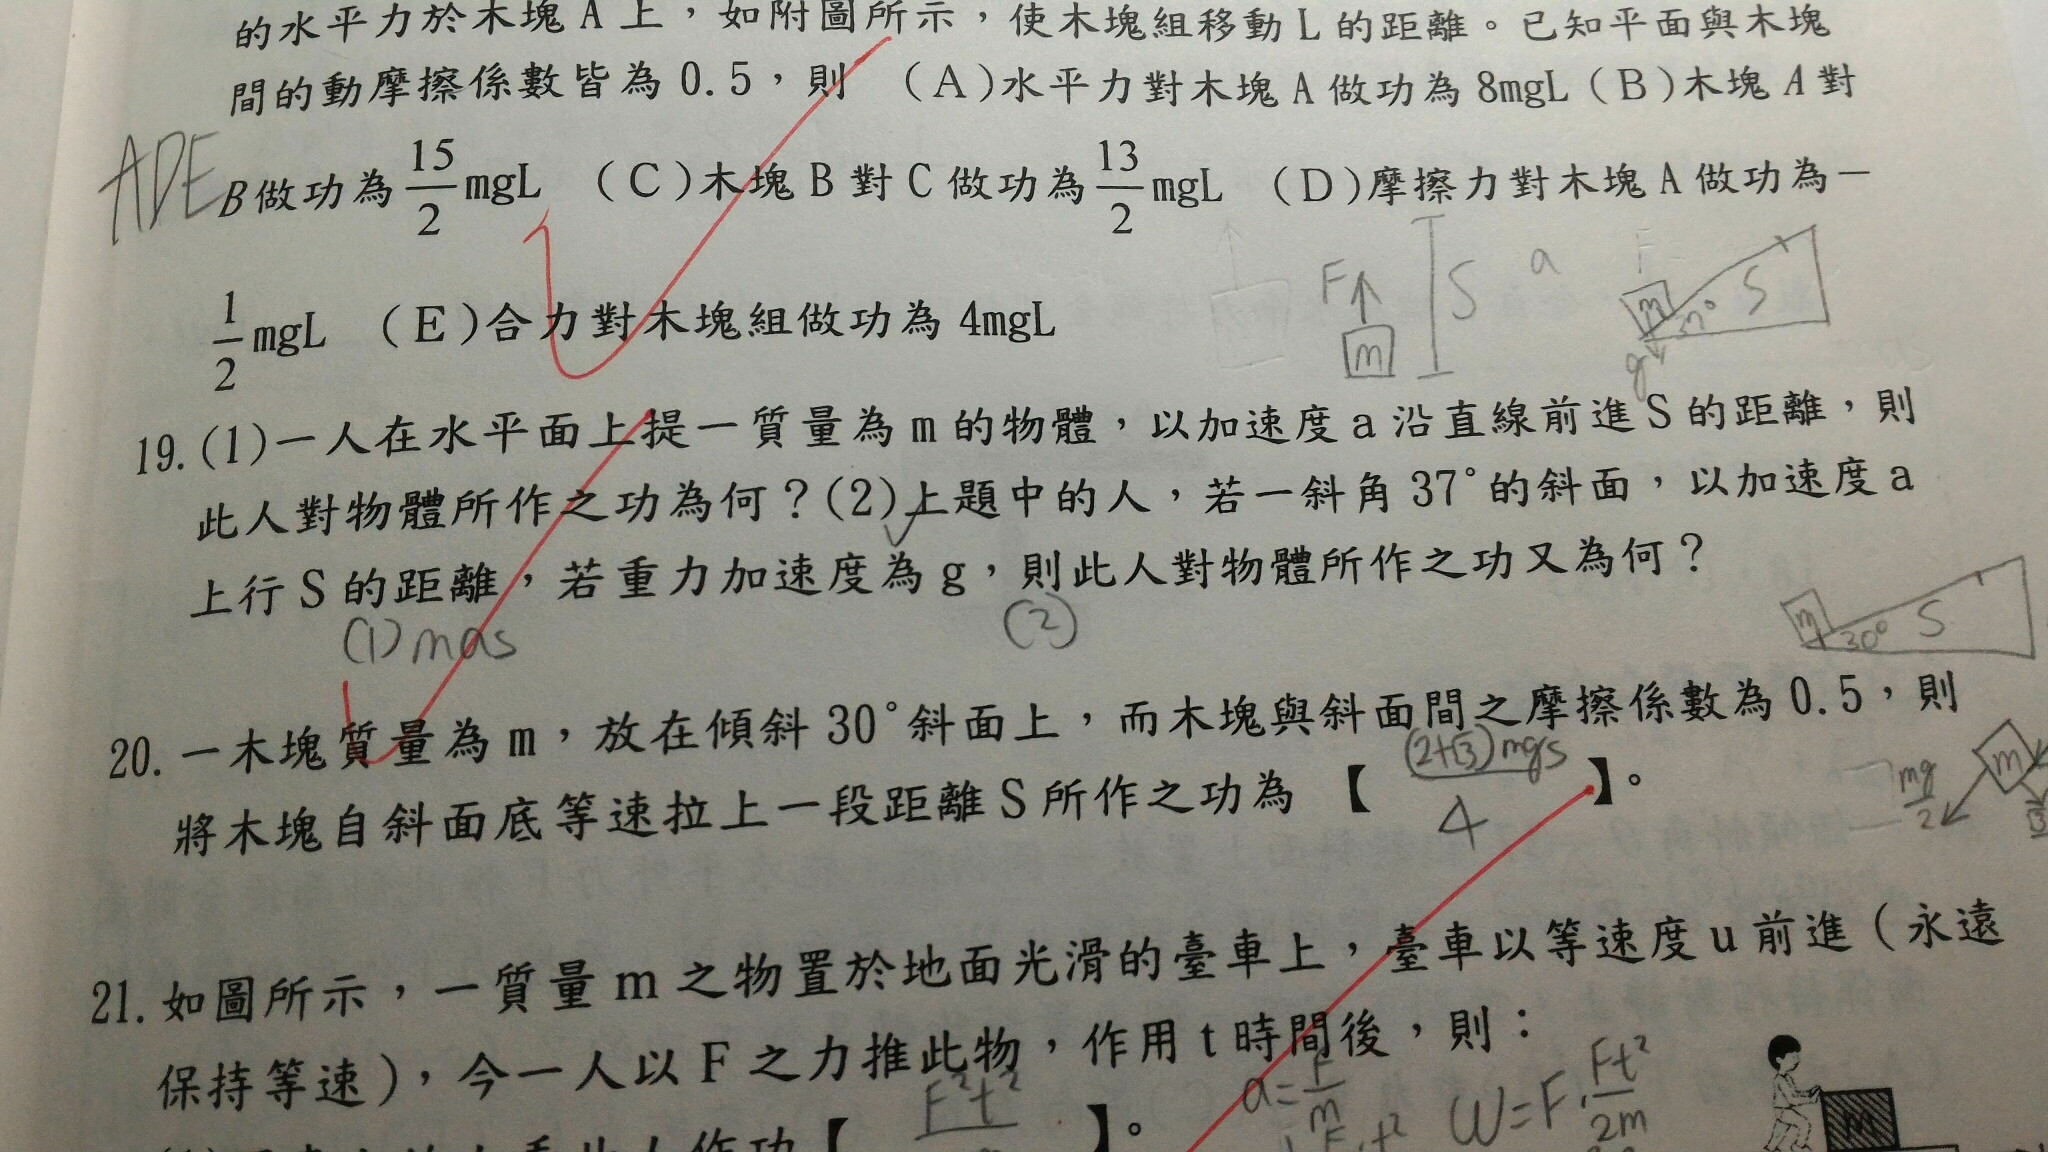 的水平力於木塊A上，如附圖所示，使木塊組移動L的距離。已知平面與木塊
間的動摩擦係數皆為0.5，則 (A)水平力對木塊A做功為8mgL (B)木塊A對
ADE
B做功為15/2mgL (C)木塊B對C做功為13/2mgL (D)摩擦力對木塊A做功為－
1/2mgL (E)合力對木塊組做功為4mgL
F
m
S
a
F
m
37°
S
g
19.(1)一人在水平面上提一質量為m的物體，以加速度a沿直線前進S的距離，則
此人對物體所作之功為何？(2)上題中的人，若一斜角37°的斜面，以加速度a
上行S的距離，若重力加速度為g，則此人對物體所作之功又為何？
(1)mas
(2)
m
30°
S
20.一木塊質量為m，放在傾斜30°斜面上，而木塊與斜面間之摩擦係數為0.5，則
將木塊自斜面底等速拉上一段距離S所作之功為【(2+√3)mgs/4】。
mg/2
m
21.如圖所示，一質量m之物置於地面光滑的臺車上，臺車以等速度u前進（永遠
保持等速），今一人以F之力推此物，作用t時間後，則：
a=F/m
W=F·Ft²/2m
F²t²
【 】。
m